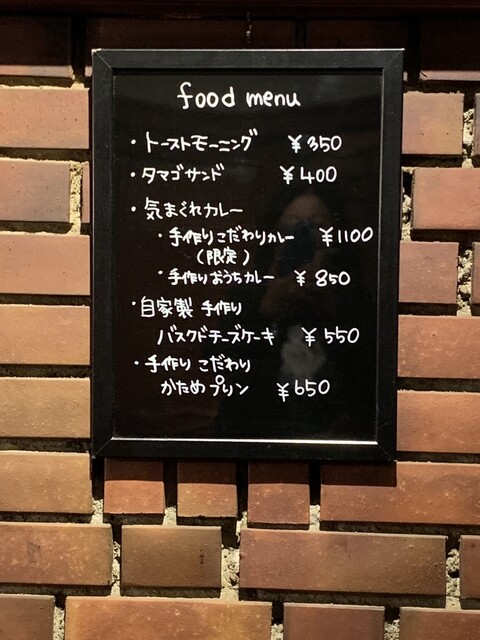 food menu
・トーストモーニング ¥350
・タマゴサンド ¥400
・気まぐれカレー
・手作りこだわりカレー ¥1100
(限定)
・手作りおうちカレー ¥850
・自家製 手作り
バスクドチーズケーキ ¥550
・手作り こだわり
かためプリン ¥650